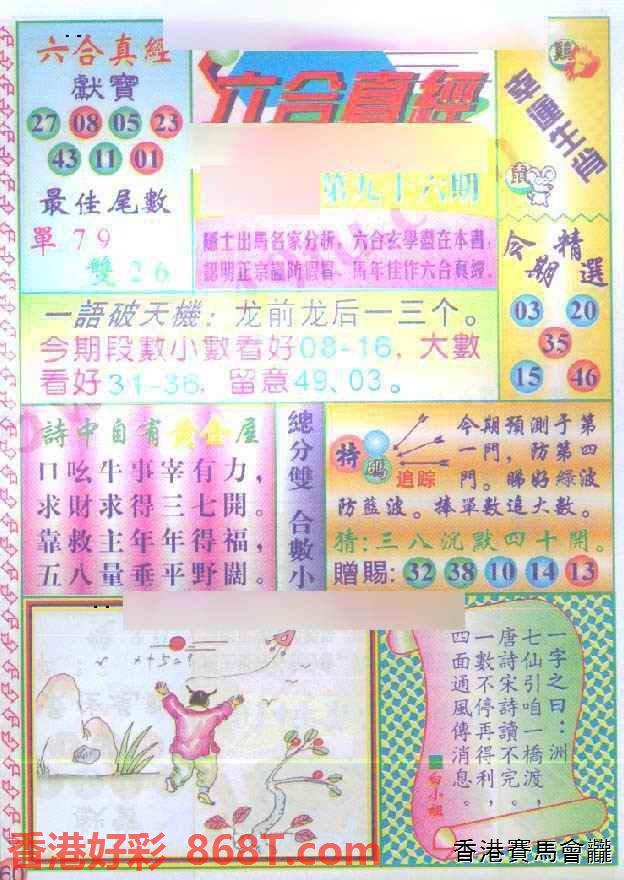 六合真經
獻寶
27 08 05 23
43 11 01
最佳尾數
單 7 9
雙 2 6
六合真經
第九十六期
隱士出馬名家分析，六合玄學盡在本書，
認明正宗謹防假冒、馬年佳作六合真經。
幸運生肖
鷄
鼠
今期精選
03 20
35
15 46
一語破天機：龙前龙后一三个。
今期段數小數看好08-16，大數
看好31-36，留意49、03。
詩中自有黃金屋
口吆牛事宰有力，
求財求得三七開。
靠救主年年得福，
五八量垂平野闊。
總分雙 合數小
特碼
追踪
今期預測于第
一門，防第四
門。睇好綠波
防藍波。捧單數追大數。
猜：三八沉默四十開。
贈賜：32 38 10 14 13
x+5=1
一字之曰：洲
七仙引咱一橋渡，
唐詩宋詩讀不完。
一數不停再得利，
四面通風傳消息。
白小姐
香港好彩 868T.com
香港賽馬會
60